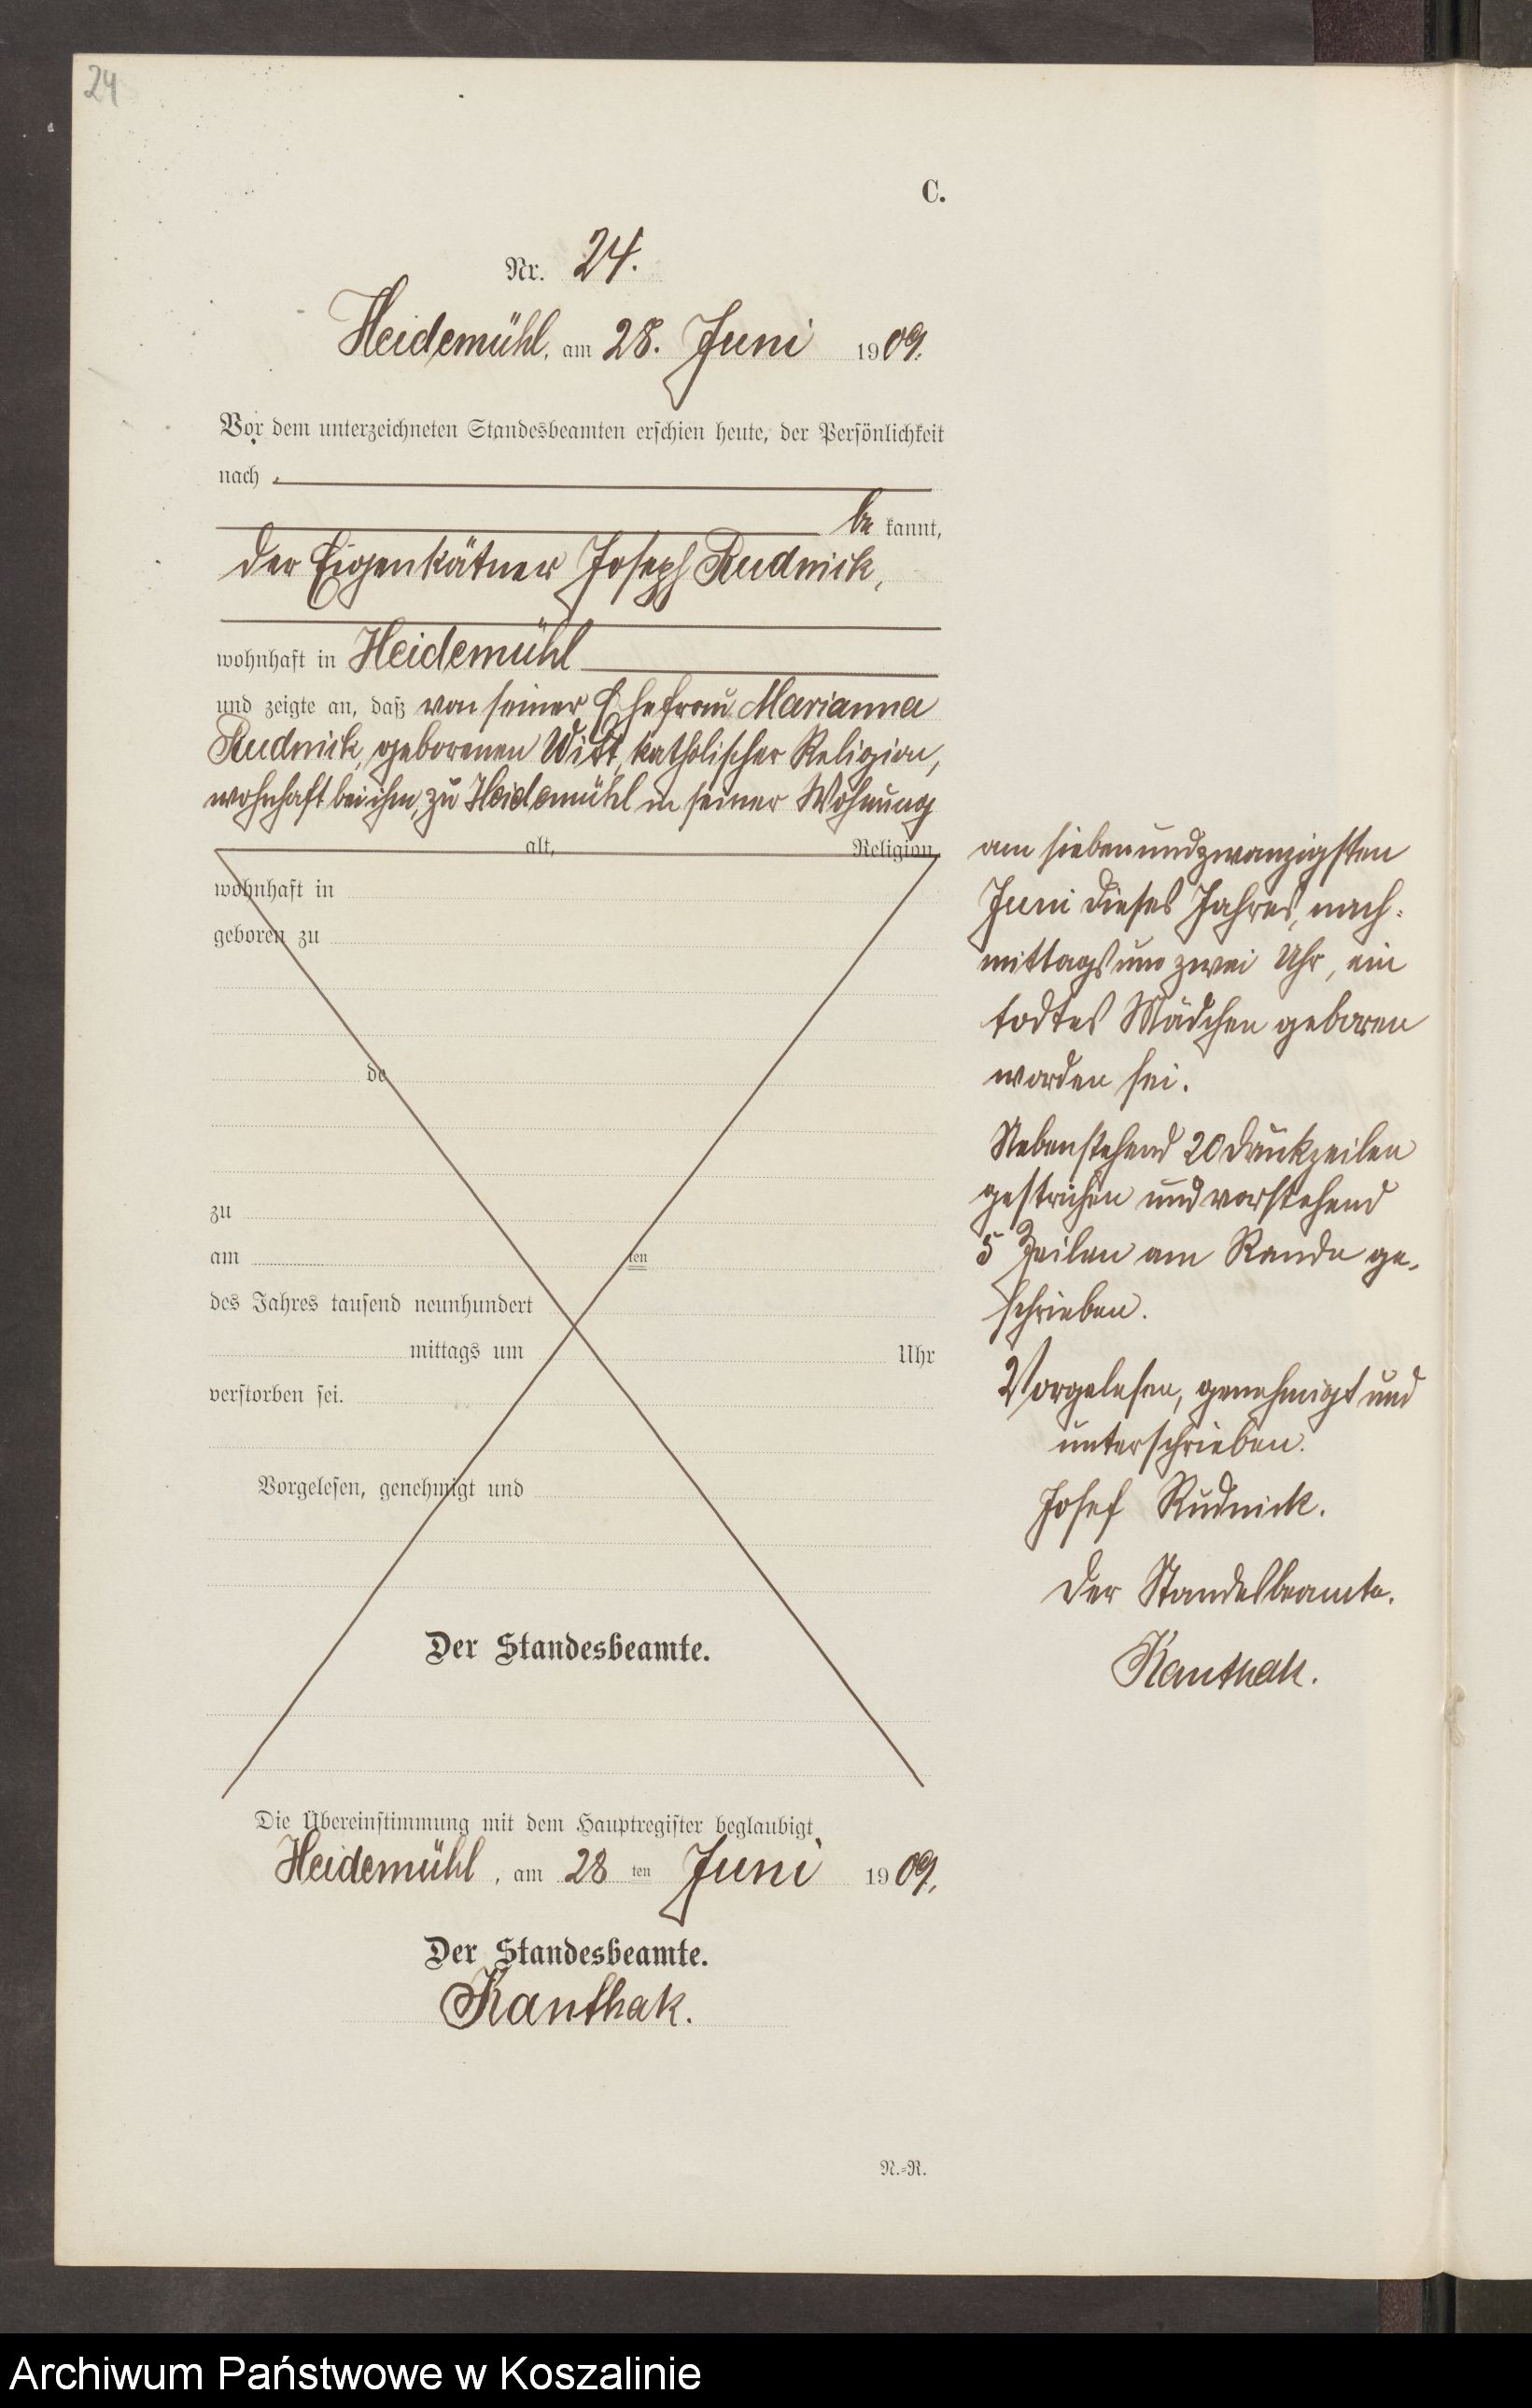 24
C.
Nr. 24.
Heidemühl, am 28. Juni 1909.
Vor dem unterzeichneten Standesbeamten erschien heute, der Persönlichkeit
nach
be kannt,
der Eigenkätner Joseph Rudnick,
wohnhaft in Heidemühl
und zeigte an, daß von seiner Ehefrau Marianna
Rudnick, geborenen Witt, katholischer Religion,
wohnhaft bei ihm, zu Heidemühl in seiner Wohnung
alt, Religion,
wohnhaft in
geboren zu
de
zu
am ten
des Jahres tausend neunhundert
mittags um Uhr
verstorben sei.
Vorgelesen, genehmigt und
Der Standesbeamte.
am siebenundzwanzigsten
Juni dieses Jahres, nach-
mittags um zwei Uhr, ein
todtes Mädchen geboren
worden sei.
Nebenstehend 20 Druckzeilen
gestrichen und vorstehend
5 Zeilen am Rande ge-
schrieben.
Vorgelesen, genehmigt und
unterschrieben.
Josef Rudnick.
Der Standesbeamte.
Kanthak.
Die Übereinstimmung mit dem Hauptregister beglaubigt
Heidemühl, am 28 ten Juni 1909.
Der Standesbeamte.
Kanthak.
N.-R.
Archiwum Państwowe w Koszalinie